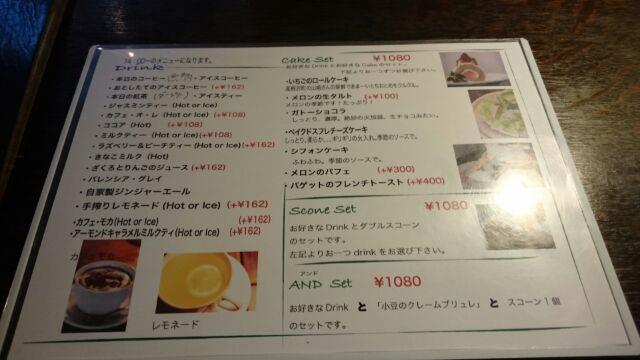 14:00〜のメニューになります。
Drink
・本日のコーヒー ・アイスコーヒー
・おとしたてのアイスコーヒー (+￥162)
・本日の紅茶 ・アイスティー
・ジャスミンティー (Hot or Ice)
・カフェ・オ・レ (Hot or Ice) (+￥108)
・ココア (Hot) (+￥108)
・ミルクティー (Hot or Ice) (+￥108)
・ラズベリー＆ピーチティー (Hot or Ice) (+￥162)
・きなこミルク (Hot)
・ざくろとりんごのジュース (+￥162)
・バレンシア・グレイ
・自家製ジンジャーエール
・手搾りレモネード (Hot or Ice) (+￥162)
・カフェ・モカ(Hot or Ice) (+￥162)
・アーモンドキャラメルミルクティ(Hot or Ice) (+￥162)
カフェモカ
レモネード
Cake Set ￥1080
お好きなDrinkとお好きなCakeのセット。
下記よりお一つずつお選び下さい。
・いちごのロールケーキ
・メロンの生タルト (+￥100)
メロンの季節です！たっぷり！
・ガトーショコラ
しっとり、濃厚。絶妙の火加減。生チョコみたい。
・ベイクドスフレチーズケーキ
しっとり、柔らか、、、ギリギリの火入れ。季節のソースで。
・シフォンケーキ
ふわふわ。季節のソースで。
・メロンのパフェ (+￥300)
・バゲットのフレンチトースト (+￥400)
Scone Set ￥1080
お好きなDrinkとダブルスコーン
のセットです。
左記よりお一つ drink をお選び下さい。
アンド
AND Set ￥1080
お好きなDrink と 「小豆のクレームブリュレ」 と スコーン１個
のセットです。